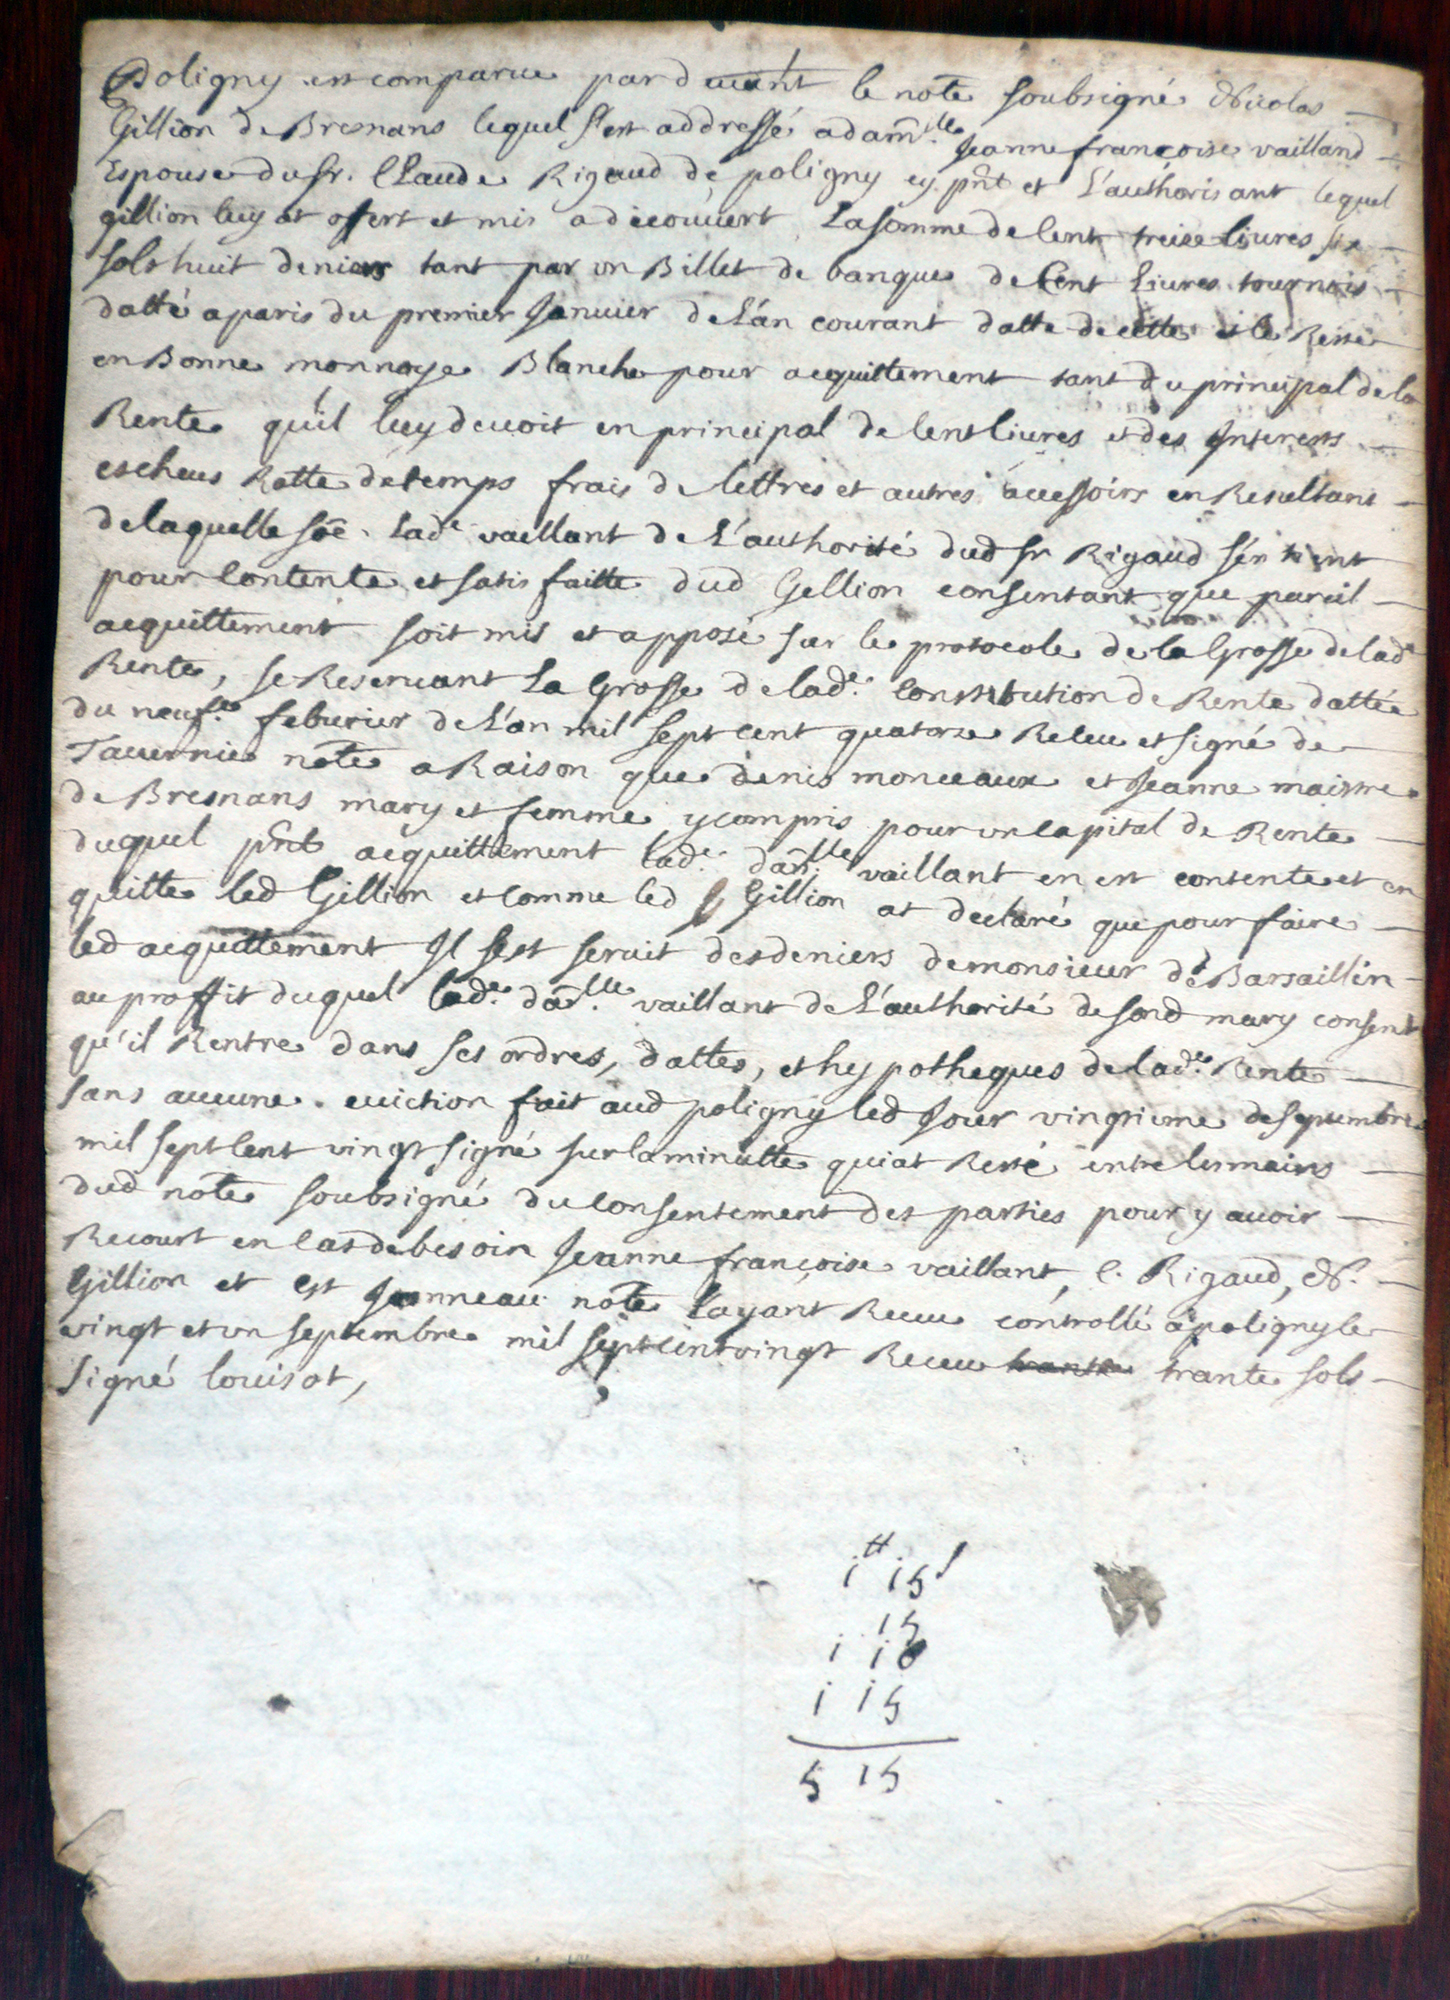 Poligny est comparue pardevant le note soubsigné Nicolas
Gillion de Bresnans lequel s'est addressé a dam.lle Jeanne françoise vailland
Espouse du sr. Claude Rigaud de poligny cy pnt et L'authorisant lequel
gillion luy at offert et mis a decouvert La somme de Cent treize livres six
sols huit deniers tant par un Billet de banque de Cent Livres tournois
datté a paris du premier Janvier de L'an courant datte de cette et le Reste
en Bonne monnoye Blanche pour acquittement tant du principal de la
Rente qu'il luy devoit en principal de Cent livres et des Interests
escheus Ratte de temps frais de lettres et autres accessoirs en Resultans
de laquelle soē. Lade vaillant de L'authorité dud sr Rigaud s'en tient
pour Contente et satisfaitte dud Gillion consentant que pareil
acquittement soit mis et apposé sur le protocole de la Grosse de lade
Rente, se Reservant La Grosse de lade. Constitution de Rente dattée
du neufe febvrier de L'an mil sept cent quatorze Releu et signé de
Tavernie note a Raison que denis monceaux et Jeanne maistre
de Bresnans mary et femme y compris pour un Capital de Rente
duquel pnt acquittement lade. dam.lle vaillant en est contente et en
quitte led Gillion et Comme led Gillion at declaré que pour faire
led acquittement Il s'est servit des deniers de monsieur de Barsaillin
au proffit duquel lade. dam.lle vaillant de L'authorité de sond mary consent
qu'il Rentre dans ses ordres, dattes, et hypotheques de lade. Rente
sans aucune eviction fait aud poligny led Jour vingtieme de septembre
mil sept Cent vingt signé sur la minutte qui at Resté entre les mains
dud note soubsigné du Consentement des parties pour y avoir
Recourt en Cas de besoin Jeanne françoise vaillant, C. Rigaud, N.
Gillion et est Jeanneau note L'ayant Receu controllé a poligny le
vingt et un septembre mil sept cent vingt Receu trante trante sols
signé Louisot,
1 ₶ 15 s
15
1 10
1 15
5 15